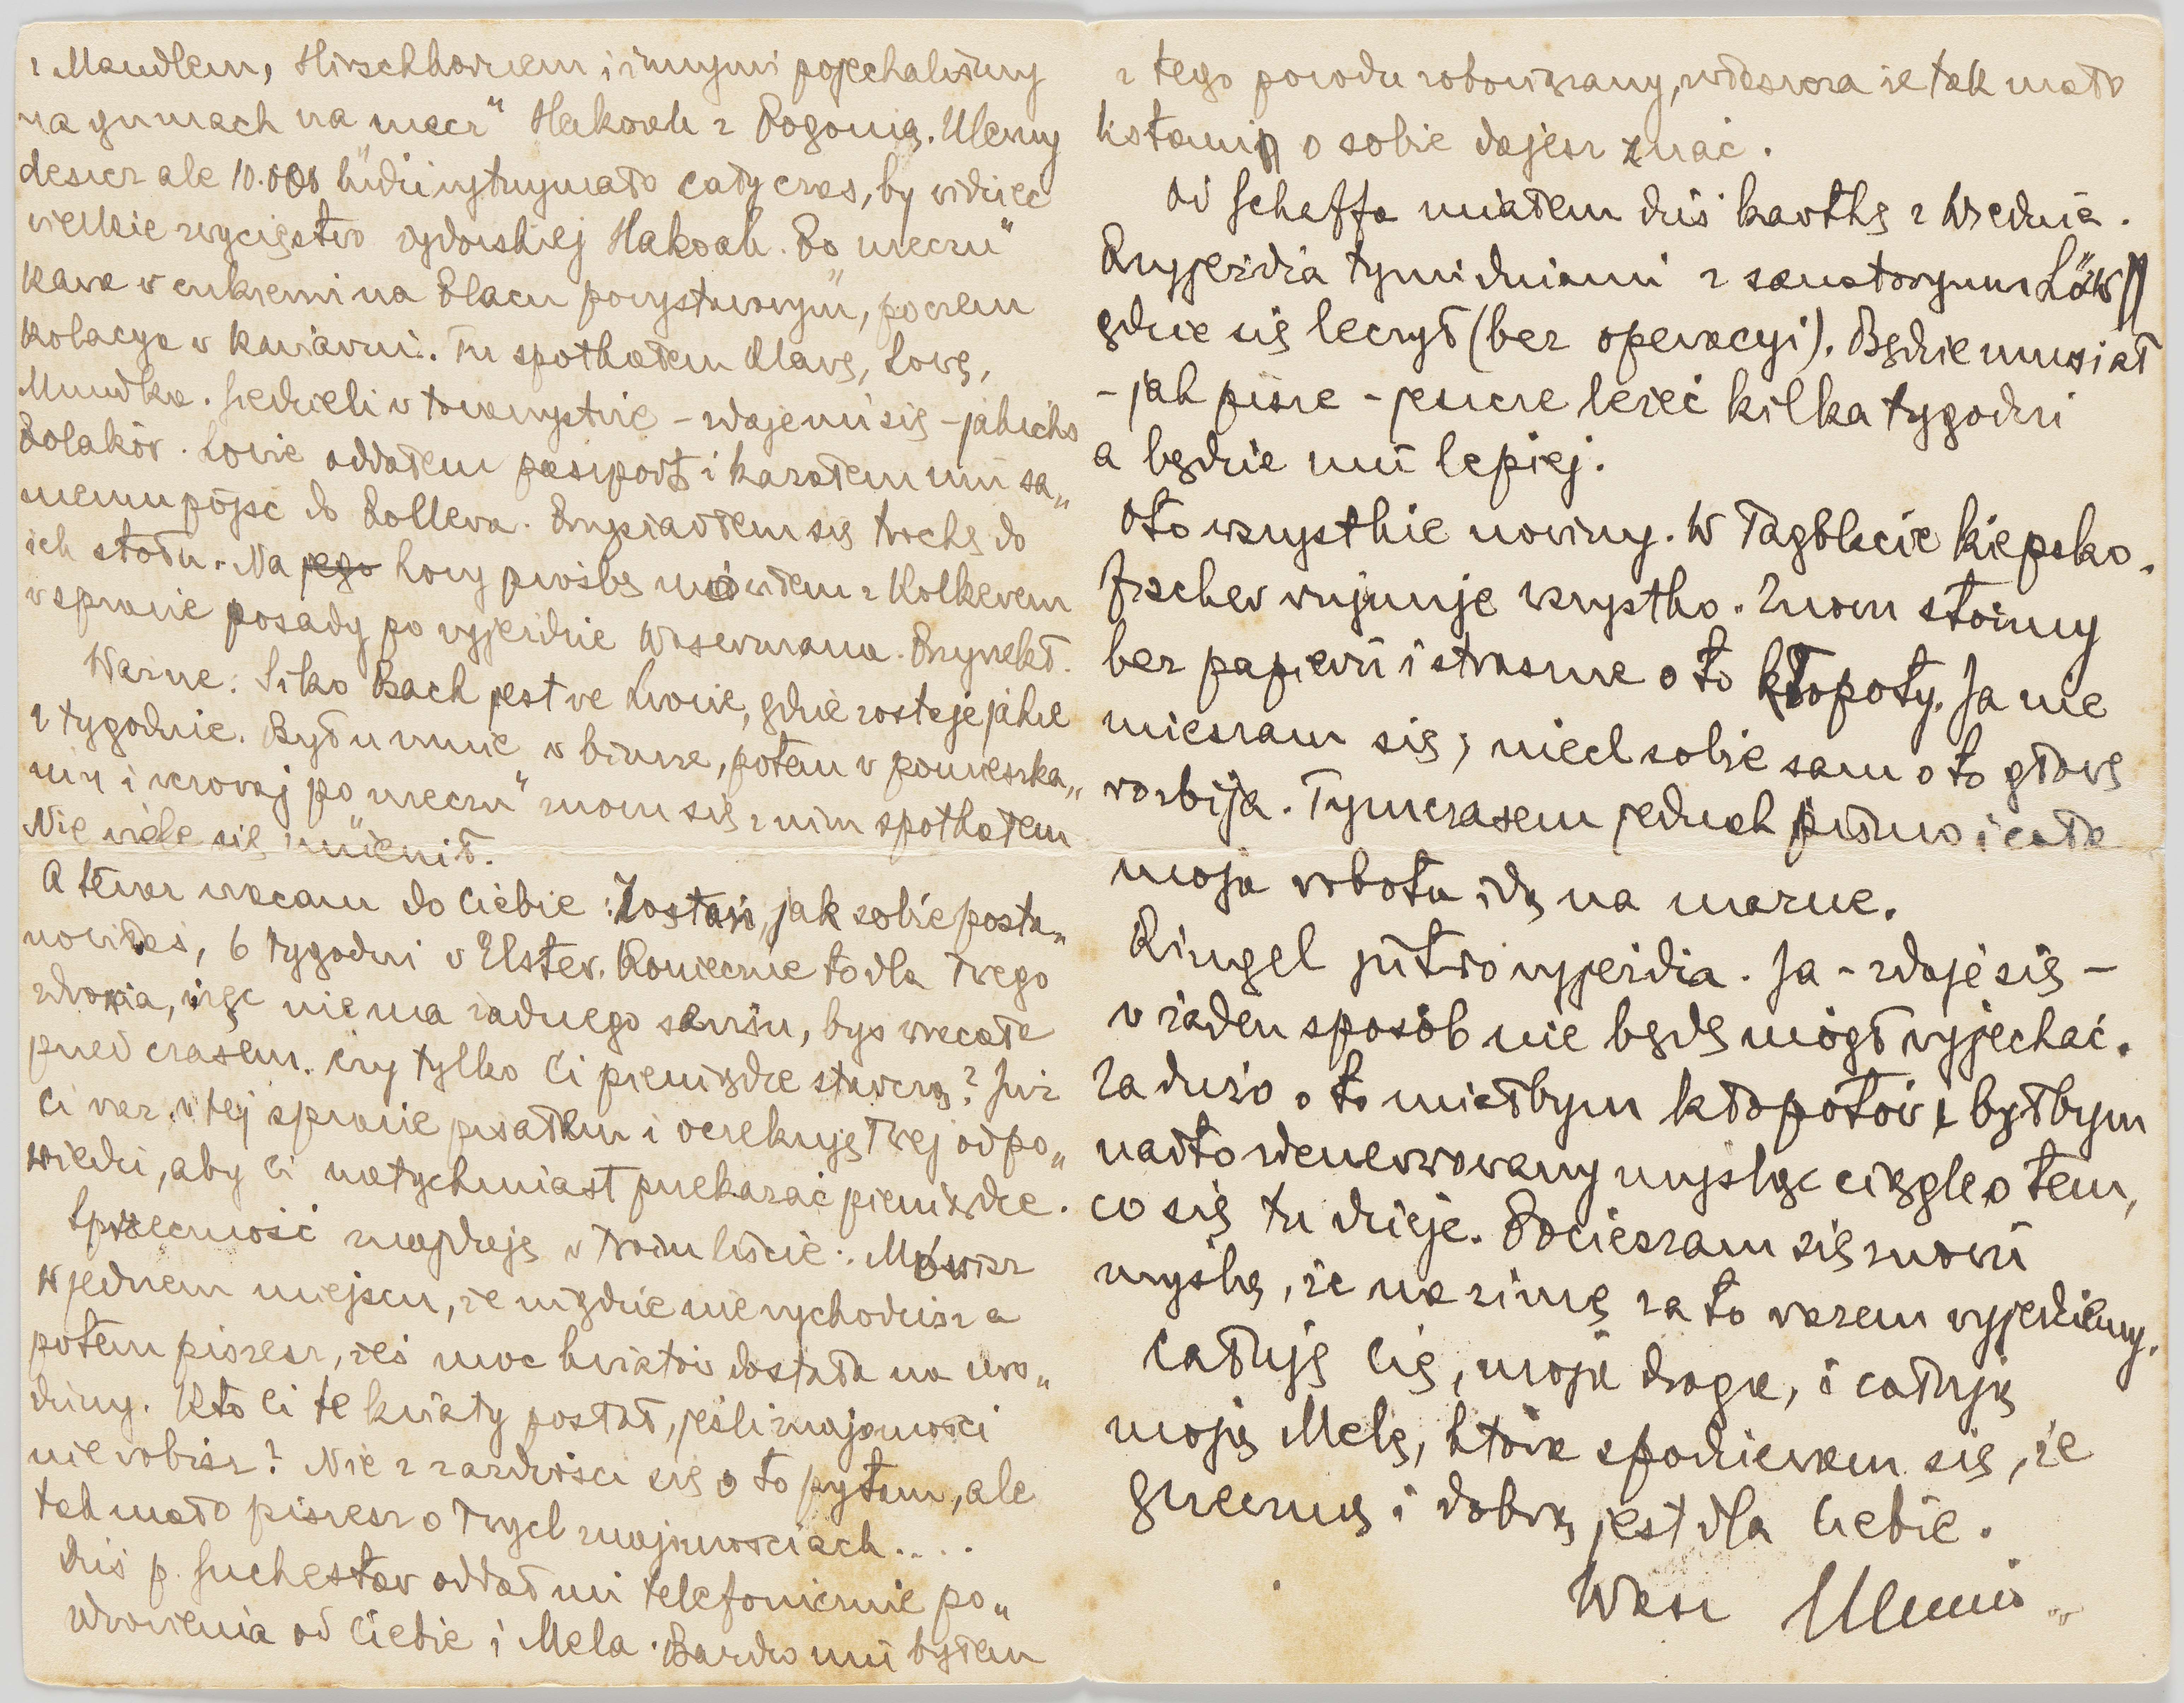 z Mandlem, Hirschhornem i innymi pojechaliśmy
na gumach na mecz" Hakoah z Pogonią. Ulewny
deszcz ale 10.000 ludzi wytrzymało cały czas, by widzieć
wielkie zwycięstwo żydowskiej Hakoah. Po meczu"
kawa w cukierni na Placu powystawowym, poczem
kolacya w kawiarni. Tu spotkałem Klarę, Lovę,
Mundka. Siedzieli w towarzystwie – zdaje mi się – jakichś
Polaków. Lovie oddałem paszport i kazałem mu sa„
memu pójść do Pollera. Przysiadłem się trochę do
ich stołu. Na jego Lovy prośbę mówiłem z Kolkerem
w sprawie posady po wyjeździe Wassermana. Przyrzekł.
Ważne: Silko Bach jest we Lwowie, gdzie zostaje jakie
2 tygodnie. Był u mnie w biurze, potem w pomieszka„
niu i wczoraj po meczu" znowu się z nim spotkałem
Nie wiele się zmienił.
A teraz wracam do Ciebie: Zostań, jak sobie posta„
nowiłaś, 6 tygodni w Elster. Konieczne to dla Twego
zdrowia, więc niema żadnego sensu, byś wracała
przed czasem. Czy tylko Ci pieniądze starczą? Już
Ci raz w tej sprawie pisałem i oczekuję Twej odpo„
wiedzi, aby Ci natychmiast przekazać pieniądze.
Sprzeczność znajduję w Twoim liście: Mówisz
w jednem miejscu, że nigdzie nie wychodzisz a
potem piszesz, żeś moc kwiatów dostała na uro„
dziny. Kto Ci te kwiaty posłał, jeśli znajomości
nie robisz? Nie z zazdrości się o to pytam, ale
tak mało piszesz o Twych znajomościach....
Dziś p. Suchestow oddał mi telefonicznie po„
zdrowienia od Ciebie i Mela. Bardzo mu byłem
z tego powodu zobowiązany, zwłaszcza że tak mało
listami o sobie dajesz znać.
Od Schaffa miałem dziś kartkę z Wiednia.
Przyjeżdża tymi dniami z sanatoryum Löw
gdzie się leczył (bez operacyi). Będzie musiał
– jak pisze – jeszcze leżeć kilka tygodni
a będzie mu lepiej.
Oto wszystkie nowiny. W Tagblacie kiepsko.
Fischer rujnuje wszystko. Znowu stoimy
bez papieru i straszne o to kłopoty. Ja nie
mieszam się, niech sobie sam o to głowę
rozbija. Tymczasem jednak pismo i cała
moja robota idą na marne.
Ringel jutro wyjeżdża. Ja – zdaje się –
w żaden sposób nie będę mógł wyjechać.
Za dużo o to miałbym kłopotów i byłbym
nadto zdenerwowany myśląc ciągle o tem,
co się tu dzieje. Pocieszam się znowu
myślą, że na zimę za to razem wyjedziemy.
Całuję Cię, moja droga, i całuję
moją Melę, która spodziewam się, że
grzeczną i dobrą jest dla Ciebie.
Wasz